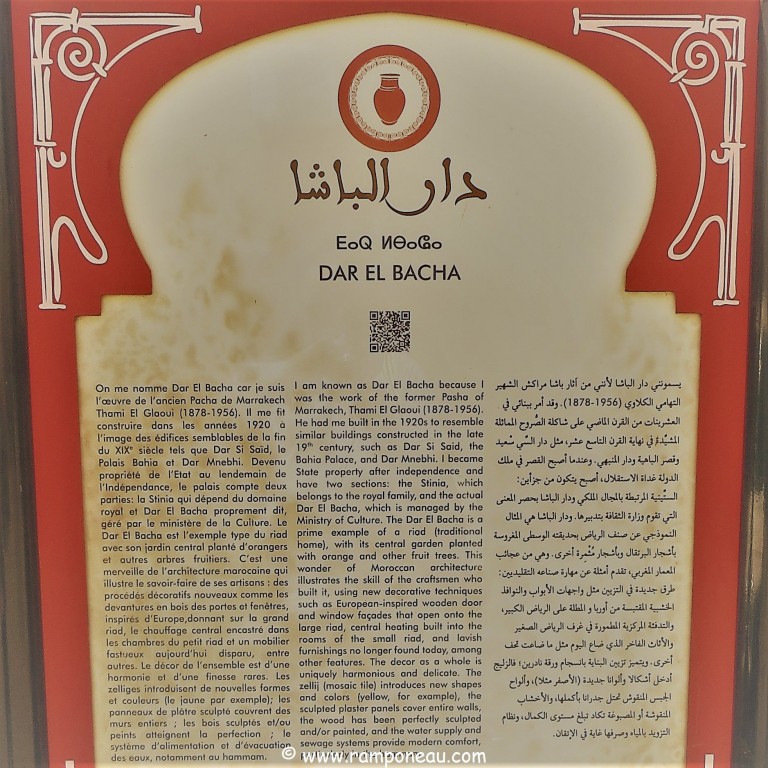 دار الباشا
ⴹⴰⵕ ⵍⴱⴰⵛⴰ
DAR EL BACHA
On me nomme Dar El Bacha car je suis
l'œuvre de l'ancien Pacha de Marrakech
Thami El Glaoui (1878-1956). Il me fit
construire dans les années 1920 à
l'image des édifices semblables de la fin
du XIXe siècle tels que Dar Si Saïd, le
Palais Bahia et Dar Mnebhi. Devenu
propriété de l'Etat au lendemain de
l'Indépendance, le palais compte deux
parties: la Stinia qui dépend du domaine
royal et Dar El Bacha proprement dit,
géré par le ministère de la Culture. Le
Dar El Bacha est l'exemple type du riad
avec son jardin central planté d'orangers
et autres arbres fruitiers. C'est une
merveille de l'architecture marocaine qui
illustre le savoir-faire de ses artisans : des
procédés décoratifs nouveaux comme les
devantures en bois des portes et fenêtres,
inspirés d'Europe,donnant sur la grand
riad, le chauffage central encastré dans
les chambres du petit riad et un mobilier
fastueux aujourd'hui disparu, entre
autres. Le décor de l'ensemble est d'une
harmonie et d'une finesse rares. Les
zelliges introduisent de nouvelles formes
et couleurs (le jaune par exemple); les
panneaux de plâtre sculpté couvrent des
murs entiers ; les bois sculptés et/ou
peints atteignent la perfection ; le
système d'alimentation et d'évacuation
des eaux, notamment au hammam.
I am known as Dar El Bacha because I
was the work of the former Pasha of
Marrakech, Thami El Glaoui (1878-1956).
He had me built in the 1920s to resemble
similar buildings constructed in the late
19th century, such as Dar Si Said, the
Bahia Palace, and Dar Mnebhi. I became
State property after independence and
have two sections: the Stinia, which
belongs to the royal family, and the actual
Dar El Bacha, which is managed by the
Ministry of Culture. The Dar El Bacha is a
prime example of a riad (traditional
home), with its central garden planted
with orange and other fruit trees. This
wonder of Moroccan architecture
illustrates the skill of the craftsmen who
built it, using new decorative techniques
such as European-inspired wooden door
and window façades that open onto the
large riad, central heating built into the
rooms of the small riad, and lavish
furnishings no longer found today, among
other features. The decor as a whole is
uniquely harmonious and delicate. The
zellij (mosaic tile) introduces new shapes
and colors (yellow, for example), the
sculpted plaster panels cover entire walls,
the wood has been perfectly sculpted
and/or painted, and the water supply and
sewage systems provide modern comfort,
يسمونني دار الباشا لأنني من آثار باشا مراكش الشهير
التهامي الكلاوي (1878-1956). وقد أمر ببنائي في
العشرينات من القرن الماضي على شاكلة الصُّروح المماثلة
المشيَّدة في نهاية القرن التاسع عشر، مثل دار السِّي سْعيد
وقصر الباهية ودار المنبهي. وعندما أصبح القصر في ملك
الدولة غداة الاستقلال، أصبح يتكون من جزأين:
السِّتِينية المرتبطة بالمجال الملكي ودار الباشا بحصر المعنى
التي تقوم وزارة الثقافة بتدبيرها. ودار الباشا هي المثال
النموذجي عن صنف الرياض بحديقته الوسطى المغروسة
بأشجار البرتقال وبأشجار مُثْمِرة أخرى. وهي من عجائب
المعمار المغربي، تقدم أمثلة عن مهارة صناعه التقليديين:
طرق جديدة في التزيين مثل واجهات الأبواب والنوافذ
الخشبية المقتبسة من أوربا و المطلة على الرياض الكبير،
والتدفئة المركزية المطمورة في غرف الرياض الصغير
والأثاث الفاخر الذي ضاع اليوم مثل ما ضاعت تحف
أخرى. ويتميز تزيين البناية بانسجام ورقة نادرين؛ فالزليج
أدخل أشكالا وألوانا جديدة (الأصفر مثلا)، وألواح
الجبس المنقوش تحتل جدرانا بأكملها، والأخشاب
المنقوشة أو المصبوغة تكاد تبلغ مستوى الكمال، ونظام
التزويد بالمياه وصرفها غاية في الإتقان.
© www.ramponeau.com